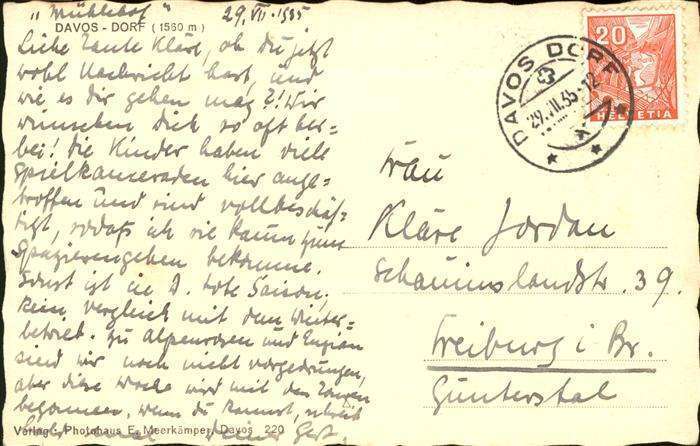 "Mühlehof" 29. VII. 1935
DAVOS - DORF (1560 m)
Liebe Tante Kläre, ob du jetzt
wohl Nachricht hast, und
wie es dir gehen mag?! Wir
wünschen dich so oft her=
bei! Die Kinder haben viele
Spielkameraden hier ange=
troffen und sind vollbeschäf=
tigt, sodaß ich sie kaum zum
Spazierengehen bekomme.
Sonst ist in D. tote Saison,
kein Vergleich mit dem Winter=
betrieb. Zu Alpenrosen und Enzian
sind wir noch nicht vorgedrungen,
aber diese Woche wird mit den
begonnen. Wenn du kannst, schreib
mal deiner
Verlag: Photohaus E. Meerkämper, Davos 220
20
HELVETIA
DAVOS DORF
29.VII.35-12
Frau
Kläre Jordan
Schauinslandstr. 39.
Freiburg i Br.
Günterstal